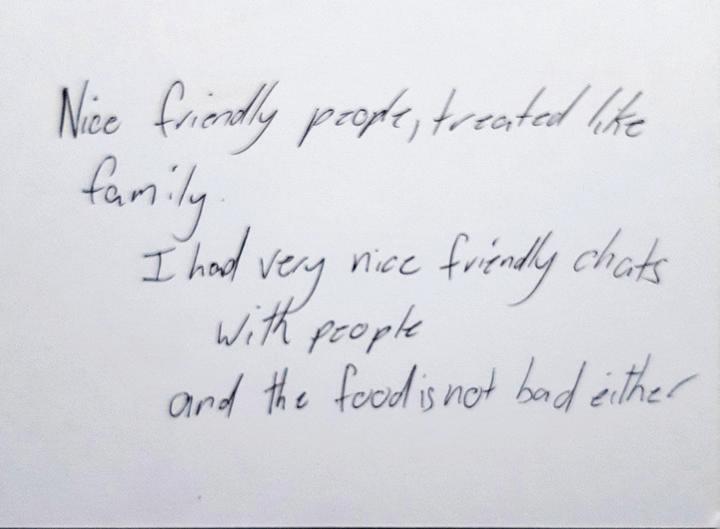 Nice friendly people, treated like
family.
I had very nice friendly chats
with people
and the food is not bad either